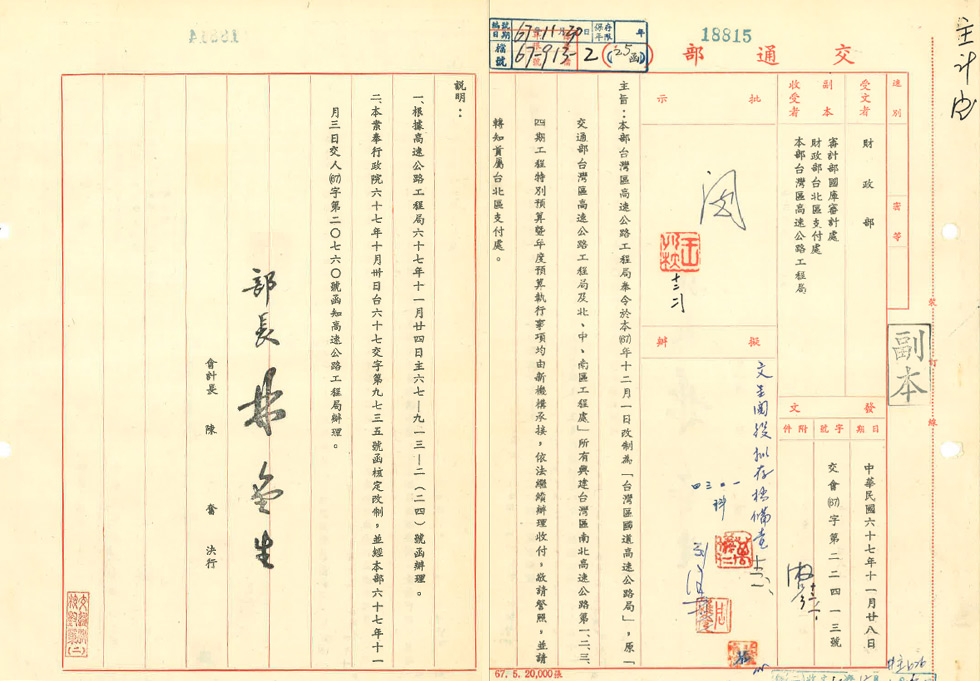 主計處
18815
編號日期 67年11月30日
保存年限 年
檔號 67-913-2(25函)
交通部
速別
密等
受文者 財政部
副本收受者
審計部國庫審計處
財政部台北區支付處
本部台灣區高速公路工程局
發文
日期 中華民國六十七年十一月廿八日
字號 交會(67)字第二二四一三號
附件
副本
裝訂線
批示
閱
擬辦
文呈閱後擬存檔備查
主旨：本部台灣區高速公路工程局奉令於本(67)年十二月一日改制為「台灣區國道高速公路局」，原「
交通部台灣區高速公路工程局及北、中、南區工程處」所有興建台灣區南北高速公路第一、二、三、
四期工程特別預算暨年度預算執行事項均由新機構承接，依法繼續辦理收付，敬請詧照，並請
轉知首屬台北區支付處。
說明：
一、根據高速公路工程局六十七年十一月廿四日主六七—九一三—二（二四）號函辦理。
二、本案奉行政院六十七年十月卅日台六十七交字第九七三五號函核定改制，並經本部六十七年十一
月三日交人(67)字第二〇七六〇號函知高速公路工程局辦理。
部長 林金生
會計長 陳奮 決行
67. 5. 20,000張